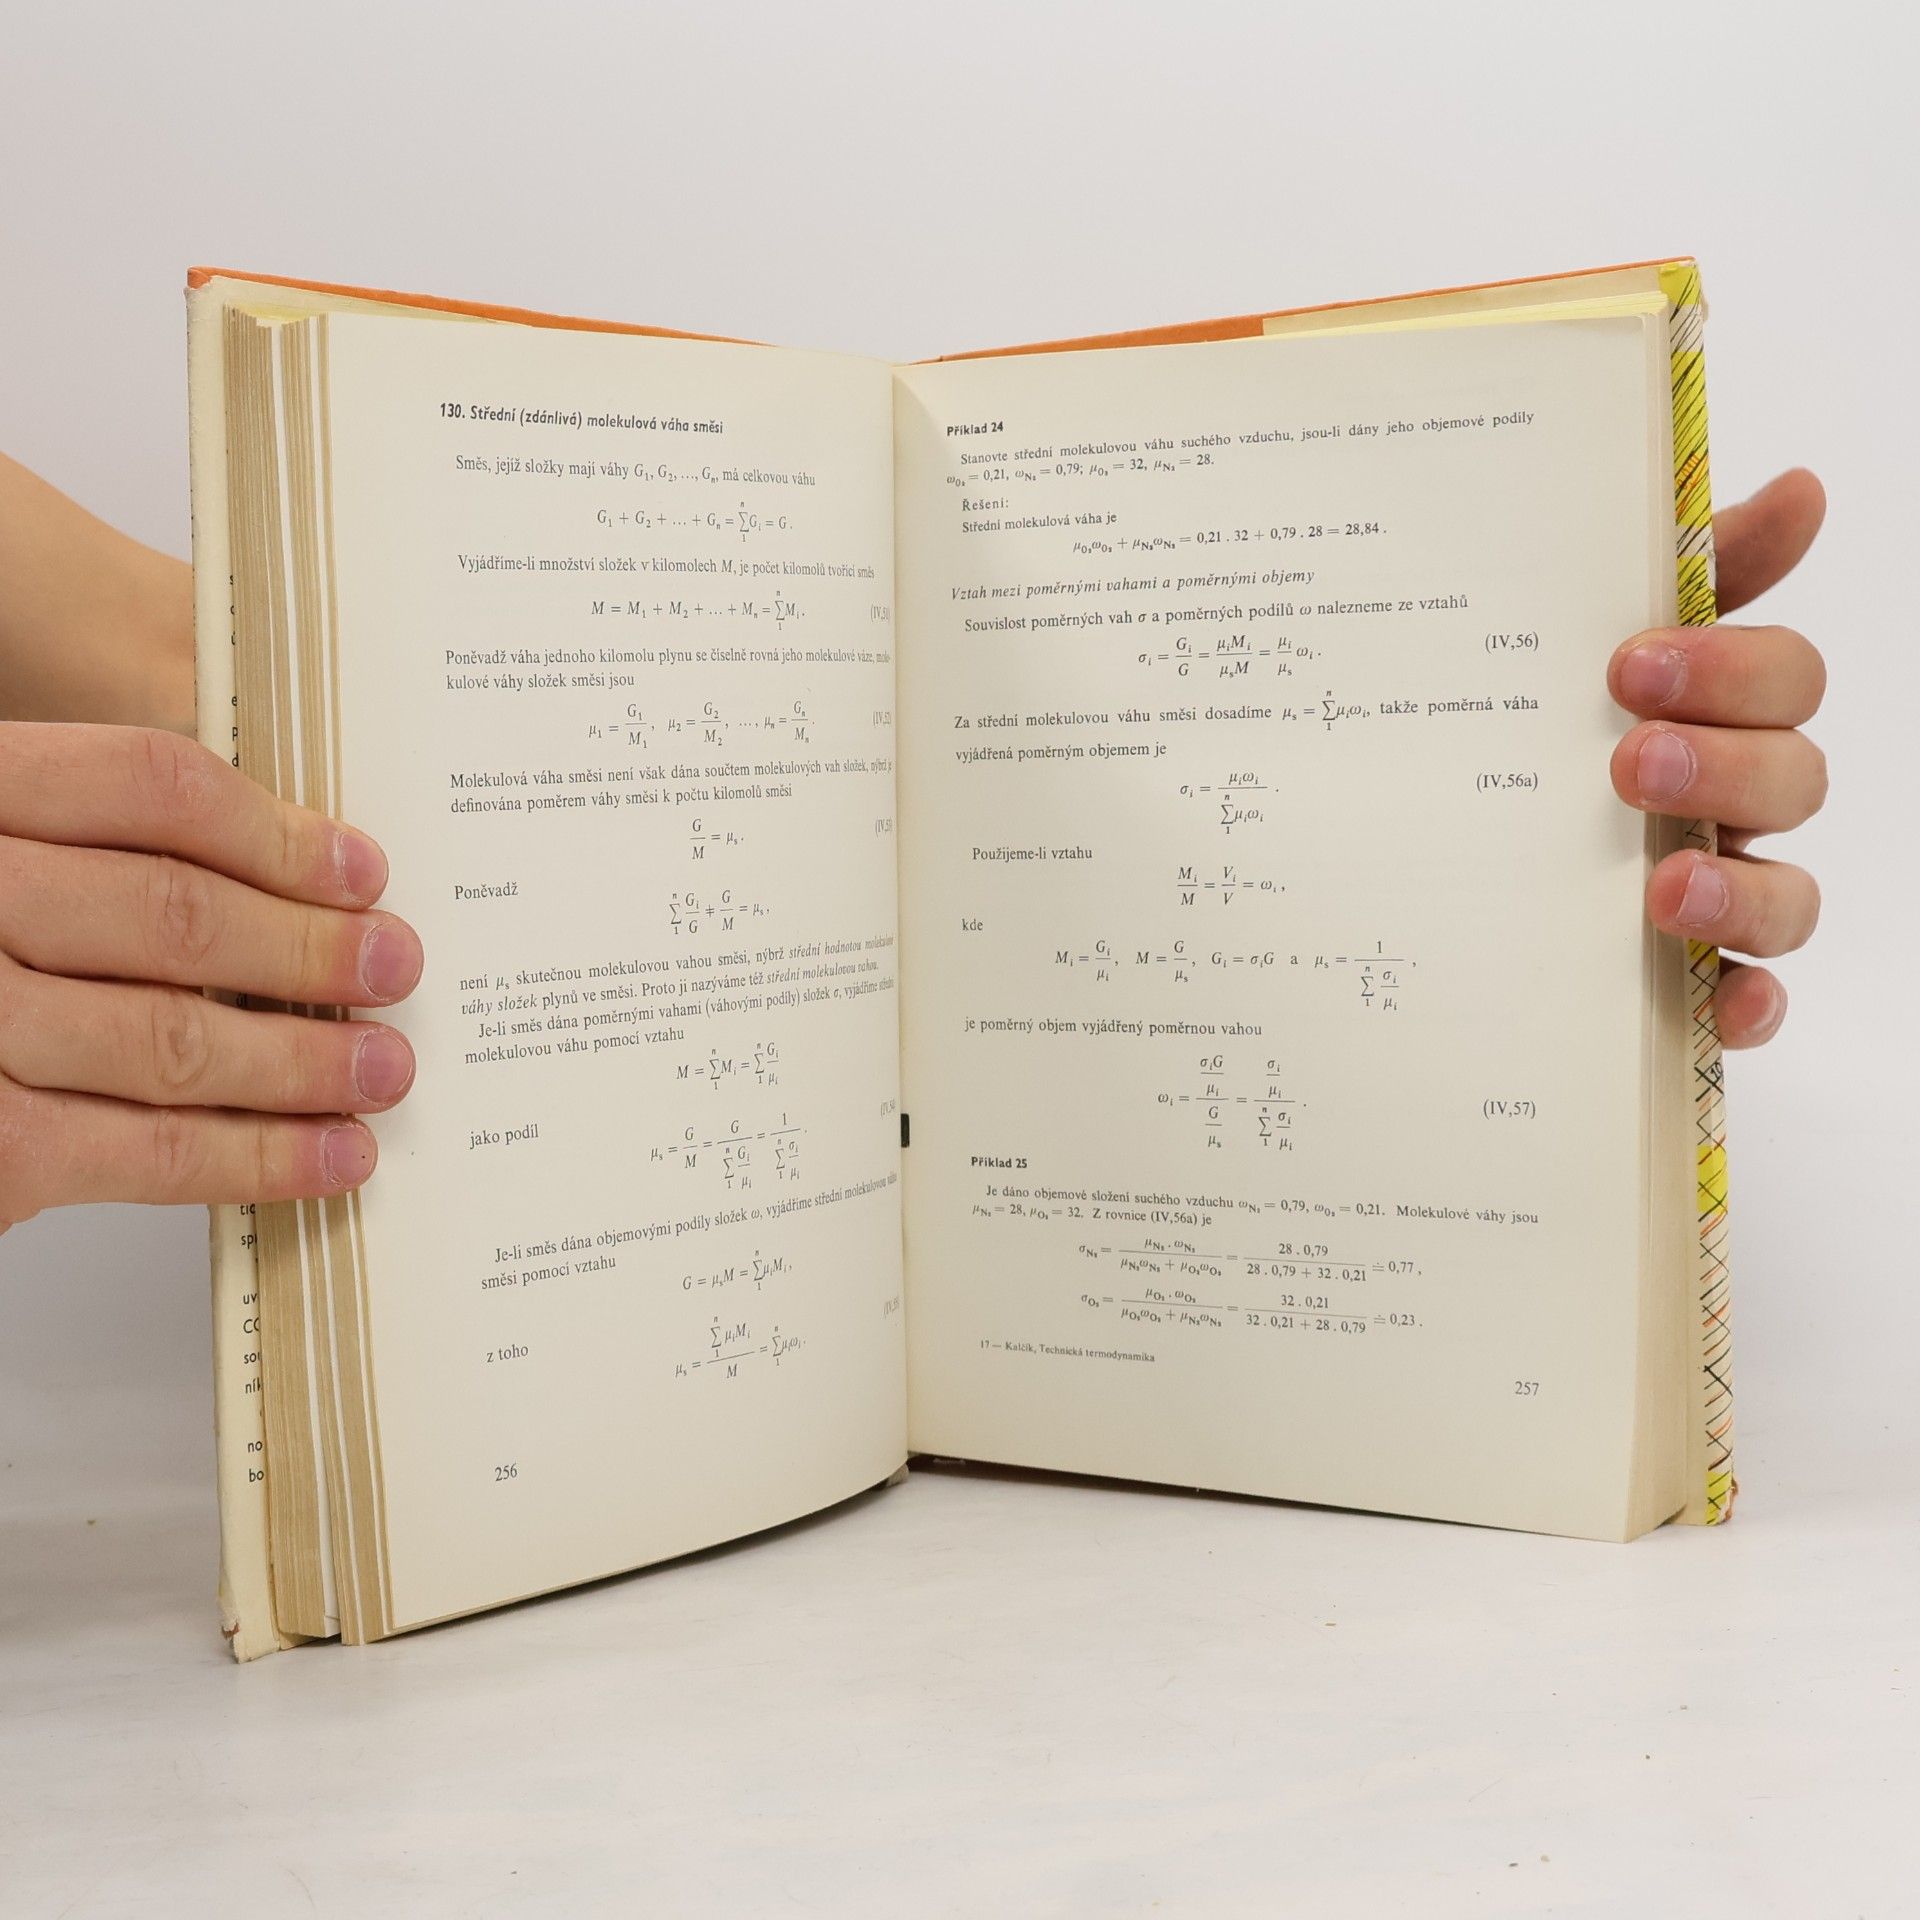 130. Střední (zdánlivá) molekulová váha směsi
Směs, jejíž složky mají váhy G₁, G₂, ..., Gₙ, má celkovou váhu
G₁ + G₂ + ... + Gₙ = ∑₁ⁿ Gᵢ = G .
Vyjádříme-li množství složek v kilomolech M, je počet kilomolů tvořící směs
M = M₁ + M₂ + ... + Mₙ = ∑₁ⁿ Mᵢ . (IV,51)
Poněvadž váha jednoho kilomolu plynu se číselně rovná jeho molekulové váze, mole-
kulové váhy složek směsi jsou
μ₁ = G₁/M₁ , μ₂ = G₂/M₂ , ..., μₙ = Gₙ/Mₙ . (IV,52)
Molekulová váha směsi není však dána součtem molekulových vah složek, nýbrž je
definována poměrem váhy směsi k počtu kilomolů směsi
G/M = μₛ . (IV,53)
Poněvadž
∑₁ⁿ Gᵢ/G ≠ G/M = μₛ ,
není μₛ skutečnou molekulovou vahou směsi, nýbrž střední hodnotou molekulové
váhy složek plynů ve směsi. Proto ji nazýváme též střední molekulovou vahou.
Je-li směs dána poměrnými vahami (váhovými podíly) složek σ, vyjádříme střední
molekulovou váhu pomocí vztahu
M = ∑₁ⁿ Mᵢ = ∑₁ⁿ Gᵢ/μᵢ
jako podíl
μₛ = G/M = G/(∑₁ⁿ Gᵢ/μᵢ) = 1/(∑₁ⁿ σᵢ/μᵢ) . (IV,54)
Je-li směs dána objemovými podíly složek ω, vyjádříme střední molekulovou váhu
směsi pomocí vztahu
G = μₛM = ∑₁ⁿ μᵢMᵢ ,
z toho
μₛ = (∑₁ⁿ μᵢMᵢ)/M = ∑₁ⁿ μᵢωᵢ . (IV,55)
256
Příklad 24
Stanovte střední molekulovou váhu suchého vzduchu, jsou-li dány jeho objemové podíly
ω_O₂ = 0,21, ω_N₂ = 0,79; μ_O₂ = 32, μ_N₂ = 28.
Řešení:
Střední molekulová váha je
μ_O₂ω_O₂ + μ_N₂ω_N₂ = 0,21 . 32 + 0,79 . 28 = 28,84 .
Vztah mezi poměrnými vahami a poměrnými objemy
Souvislost poměrných vah σ a poměrných podílů ω nalezneme ze vztahů
σᵢ = Gᵢ/G = μᵢMᵢ/μₛM = μᵢ/μₛ ωᵢ . (IV,56)
Za střední molekulovou váhu směsi dosadíme μₛ = ∑₁ⁿ μᵢωᵢ, takže poměrná váha
vyjádřená poměrným objemem je
σᵢ = μᵢωᵢ/(∑₁ⁿ μᵢωᵢ) . (IV,56a)
Použijeme-li vztahu
Mᵢ/M = Vᵢ/V = ωᵢ ,
kde
Mᵢ = Gᵢ/μᵢ , M = G/μₛ , Gᵢ = σᵢG a μₛ = 1/(∑₁ⁿ σᵢ/μᵢ) ,
je poměrný objem vyjádřený poměrnou vahou
ωᵢ = (σᵢG/μᵢ)/(G/μₛ) = (σᵢ/μᵢ)/(∑₁ⁿ σᵢ/μᵢ) . (IV,57)
Příklad 25
Je dáno objemové složení suchého vzduchu ω_N₂ = 0,79, ω_O₂ = 0,21. Molekulové váhy jsou
μ_N₂ = 28, μ_O₂ = 32. Z rovnice (IV,56a) je
σ_N₂ = (μ_N₂ . ω_N₂)/(μ_N₂ω_N₂ + μ_O₂ω_O₂) = (28 . 0,79)/(28 . 0,79 + 32 . 0,21) ≐ 0,77 ,
σ_O₂ = (μ_O₂ . ω_O₂)/(μ_O₂ω_O₂ + μ_N₂ω_N₂) = (32 . 0,21)/(32 . 0,21 + 28 . 0,79) ≐ 0,23 .
17 — Kalčík, Technická termodynamika
257